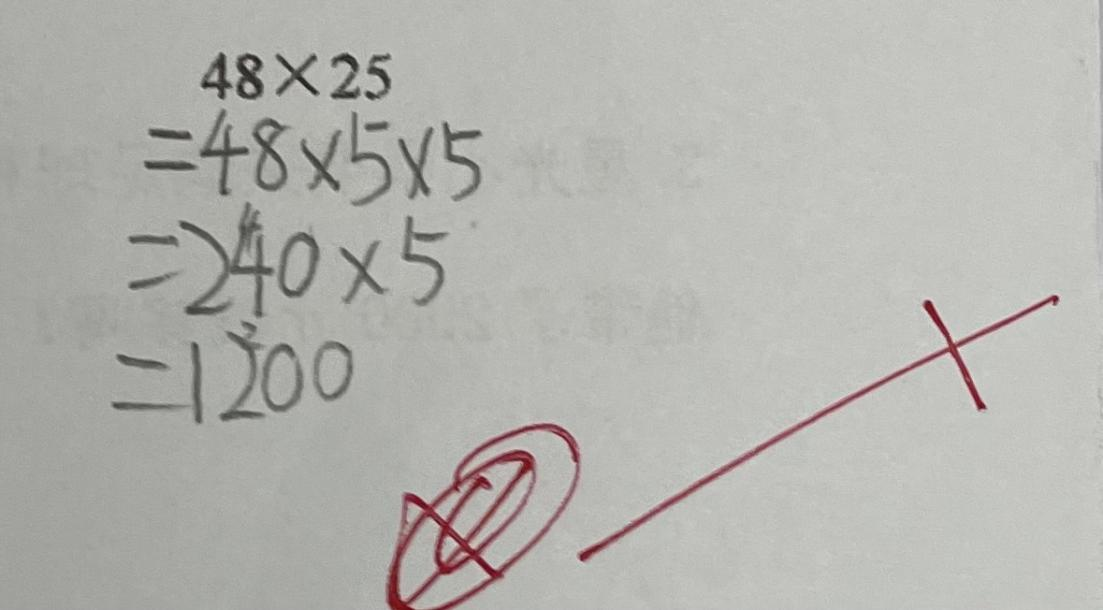 48×25
=48×5×5
=240×5
=1200